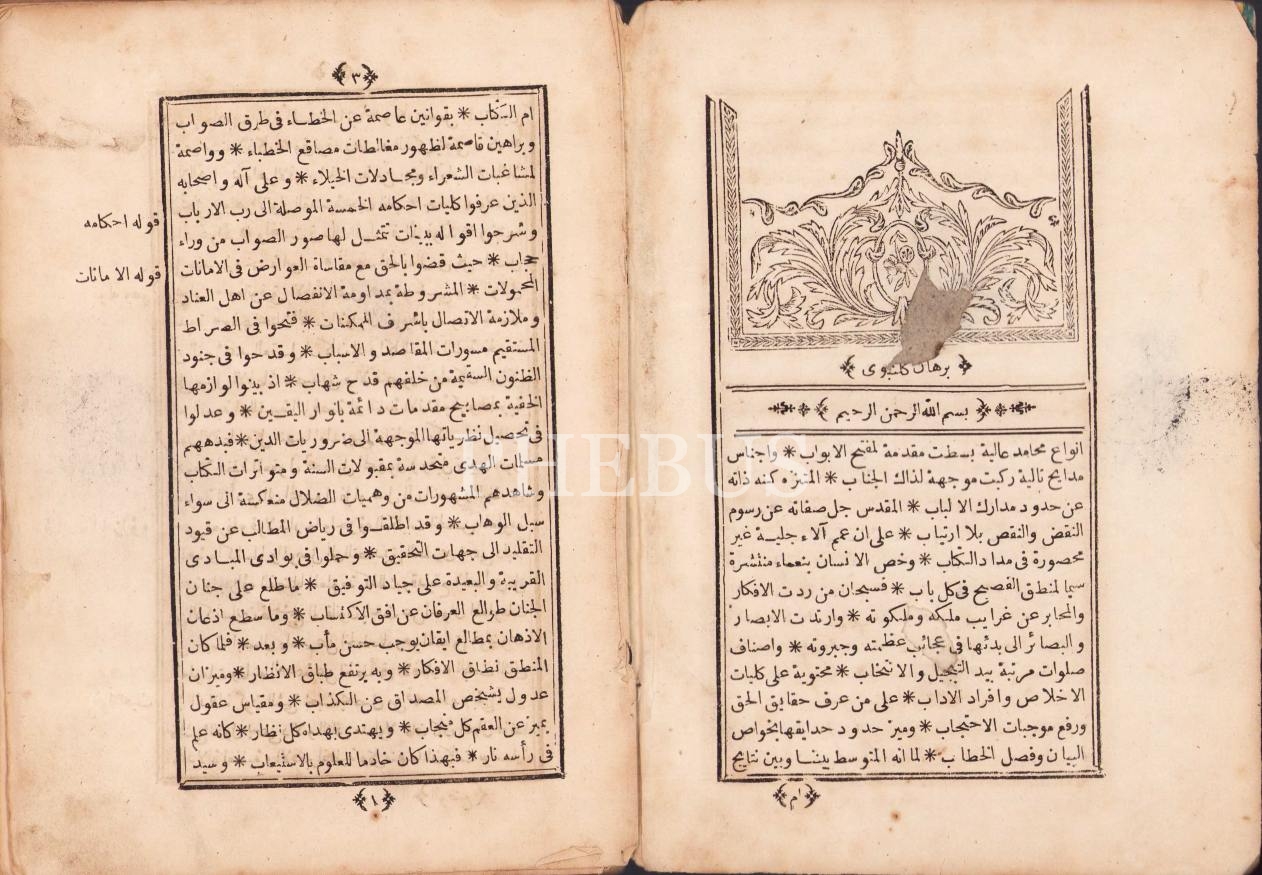 برهان كلنبوى
بسم الله الرحمن الرحيم
انواع محامد عالية بسطت مقدمة لمفتح الابواب * واجناس
مدايح تالية ركبت موجهة لذلك الجناب * المتنزه كنه ذاته
عن حدود مدارك الالباب * المقدس جل صفاته عن رسوم
النقض والنقص بلا ارتياب * على ان عمم آلاء جلية غير
محصورة فى مداد الكتاب * وخص الانسان بنعماء منتشرة
سيما لمنطق الفصيح فى كل باب * فسبحان من ردت الافكار
والمحابر عن غرايب ملكه وملكوته * وارتدت الابصار
والبصائر الى بدئها فى عجائب عظمته وجبروته * واصناف
صلوات مرتبة بيد التبجيل والانتخاب * محتوية على كليات
الاخلاص وافراد الاداب * على من عرف حقايق الحق
ورفع موجبات الاحتجاب * وميز حدود حدايقها بخواص
البيان وفصل الخطاب * لما انه المتوسط بيننا وبين نتايج
ام
٣
ام الكتاب * بقوانين عاصمة عن الخطاء فى طرق الصواب
وبراهين قاصمة لظهور مغالطات مصاقع الخطباء * وواصمة
لمشاغبات الشعراء ومجادلات الخيلاء * وعلى آله واصحابه
الذين عرفوا كليات احكامه الخمسة الموصلة الى رب الارباب
وشرحوا اقواله بينات تتمثل لها صور الصواب من وراء
حجاب * حيث قضوا بالحق مع مقاساة العوارض فى الامانات
المحمولات * المشروطة بمداومة الانفصال عن اهل العناد
وملازمة الاتصال باشرف الممكنات * فتحوا فى الصراط
المستقيم مسورات المقاصد والاسباب * وقدحوا فى جنود
الظنون السقيمة من خلفهم قدح شهاب * اذ بينوا لوازمها
الخفية بمصابيح مقدمات دائمة بانوار اليقين * وعدلوا
فى تحصيل نظرياتها الموجهة الى ضروريات الدين * فبدههم
مسلمات الهدى متحدسة بمقبولات السنة ومتواترات الكتاب
وشاهدهم المشهورات من وهميات الضلال منعكسة الى سواء
سبل الوهاب * وقد اطلقوا فى رياض المطالب عن قيود
التقليد الى جهات التحقيق * وحملوا فى بوادى المبادى
القريبة والبعيدة على جياد التوفيق * ما طلع على جنان
الجنان طوالع العرفان عن افق الاكتساب * وما سطع اذعان
الاذهان بمطالع ايقان يوجب حسن مأب * وبعد * فلما كان
المنطق نطاق الافكار * وبه يرتفع طباق الانظار * وميزان
عدول يشخص المصداق عن الكذاب * ومقياس عقول
يميز عن العقم كل منجاب * ويهتدى بهداه كل نظار * كانه علم
فى رأسه نار * فبهذا كان خادما للعلوم بالاستيعاب * وسيد
قوله احكامه
قوله الامانات
١